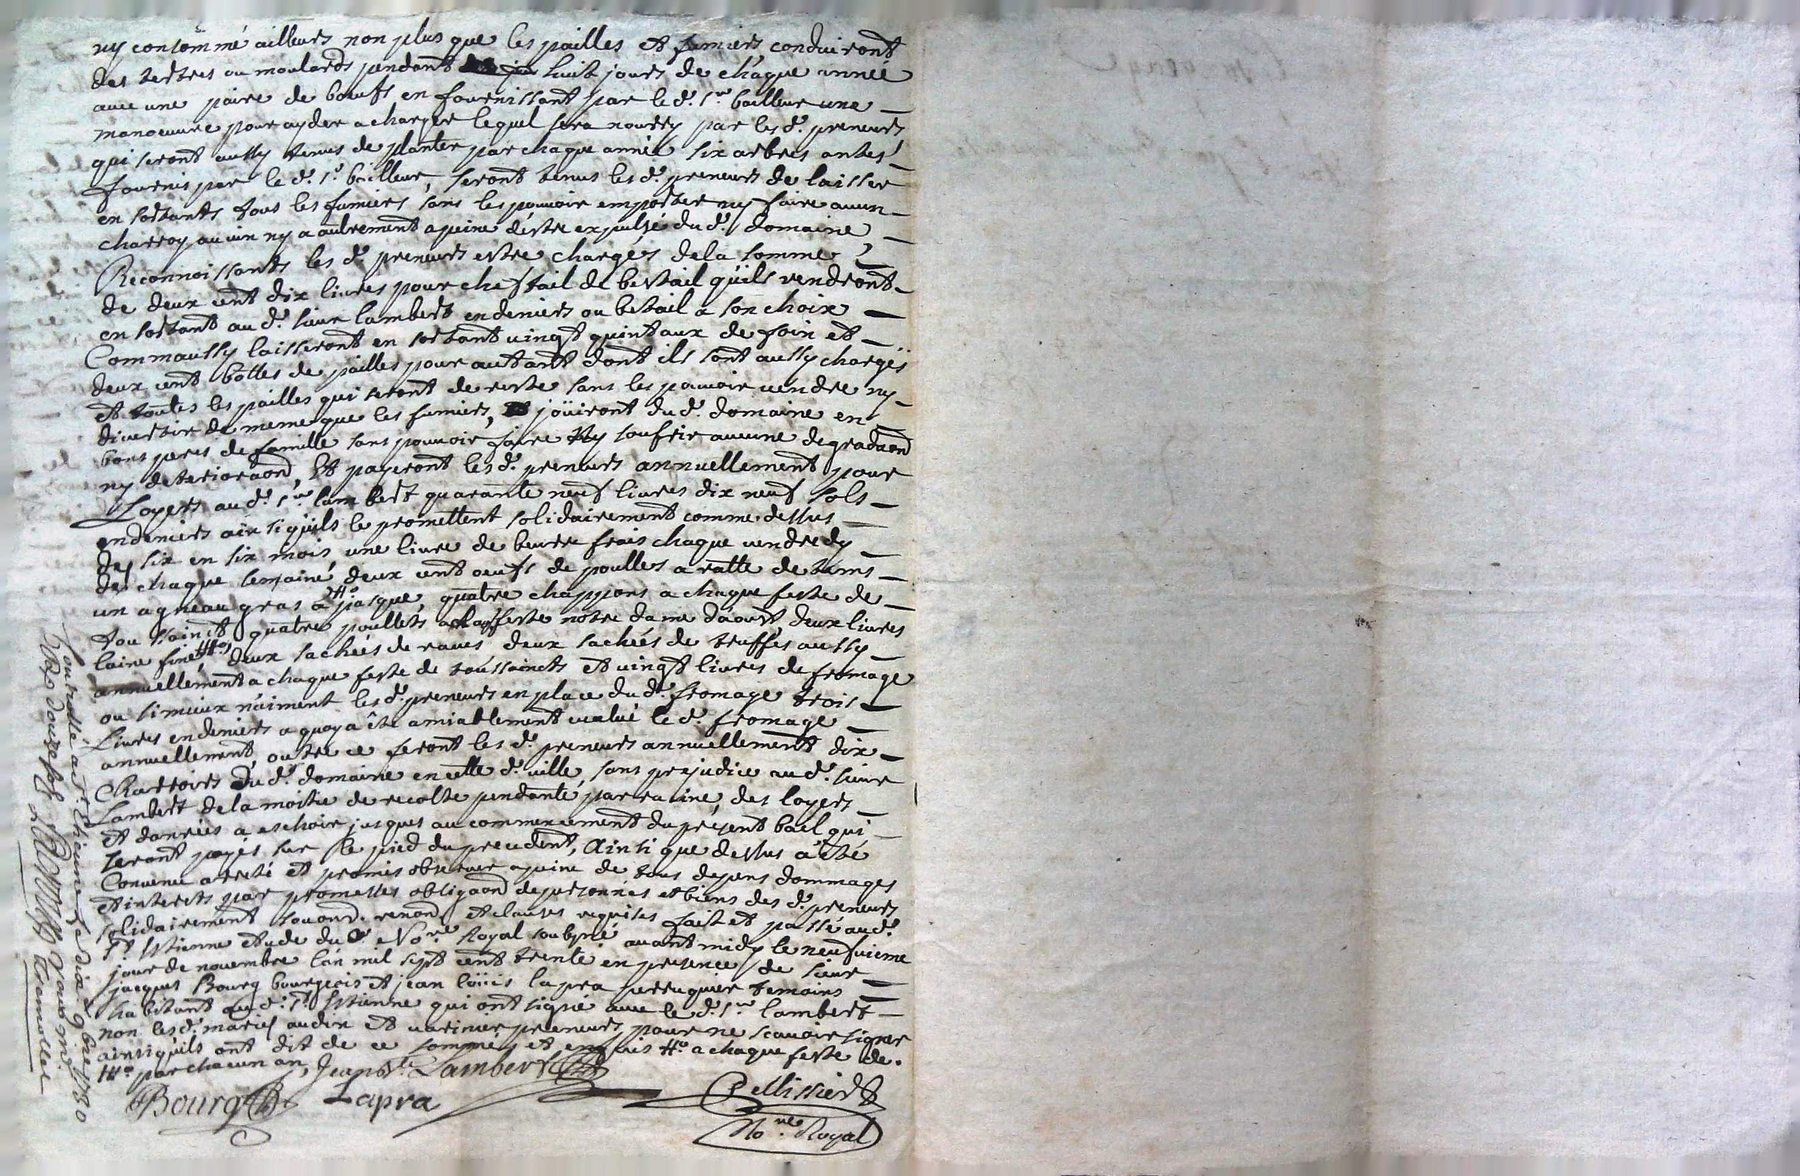 ny consommé ailleurs non plus que les pailles et fumiers, conduiront
des tertres ou moulards pendant huit jours de chaque année
avec une paire de bœufs en fournissant par le d. sr bailleur une
manoeuvre pour ayder a charger lequel sera nourry par les d. preneurs
qui seront aussy tenus de planter par chaque année six arbres antés
fournis par le d. sr bailleur, seront tenus les d. preneurs de laisser
en sortants tous les fumiers sans les pouvoir emporter ny faire aucun
charroy aucun ny a autrement a peine d'estre expulsé du d. domaine,
Reconnoissants les d. preneurs estre chargés de la somme
de deux cent dix livres pour cheftail de bestail qu'ils rendront
en sortant au d. sieur lambert en deniers ou betail a son choix
Comm aussy laisseront en sortant vingt quintaux de foin et
deux cent bottes de pailles pour autant dont ils sont aussy chargés
et toutes les pailles qui seront de reste sans les pouvoir vendre ny
divertir de meme que les fumiers, joüiront du d. domaine en
bons peres de famille sans pouvoir faire ny soufrir aucune degradaond
ny deterioraond, Et payeront les d. preneurs annuellement pour
Loyers au d. sr lambert quarante neuf livres dix neuf sols
en deniers ainsi qu'ils le promettent solidairement comme dessus
de six en six mois, une livre de beurre frais chaque vendredy
de chaque semaine, deux cent oeufs de poulles a ratte de tems
un agneau gras a pasque, quatre chappons a chaque feste de
toussainct quatre poullets a chaq feste notre dame d'aoust, deux livres
laine fine, deux sachées de raves, deux sachées de truffes aussy
annuellement a chaque feste de toussaincts et vingt livres de fromage
ou si mieux n'aiment les d. preneurs en place du d. fromage trois
Livres en deniers a quoy a été amiablement evalué le d. fromage
annuellement, outre ce feront les d. preneurs annuellement dix
Charroirs du d. domaine en cette d. ville, sans prejudice au d. sieur
Lambert de la moitié de recolte pendante par racine, des loyers
et danrées a eschoir jusques au commencement du présent bail qui
seront payés sur le pied du precedent, Ainsi que dessus a été
Convenu arreté et promis observer a peine de tous depens dommages
et interets par promesses obligaond de personnes et biens des d. preneurs
solidairement renond. et clauses requises fait et passé au d.
St Estienne etude du Nore Royal soubsné avant midy le neufvieme
jour de novembre l'an mil sept cent trente en presence de sieur
jacques Bourg bourgeois et jean loüis lapra perruquier temoins
habitant au d. St Estienne qui ont signé avec le d. sr lambert
non les d. mariés et preneurs pour ne scavoir signer
ainsi qu'ils ont dit de ce sommés et enquis # a chaque feste de
# par chacun an, Jean bte Lambert
Bourg Lapra Pellissier
Nore Royal
Controllé a St Etienne le dix 9bre 1730
Reçu douze sols